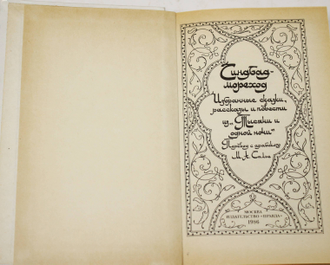 Синдбад-
мореход
Избранные сказки,
рассказы и повести
из „Тысячи и
одной ночи“
Перевод с арабского
М. А. Салье
МОСКВА
ИЗДАТЕЛЬСТВО «ПРАВДА»